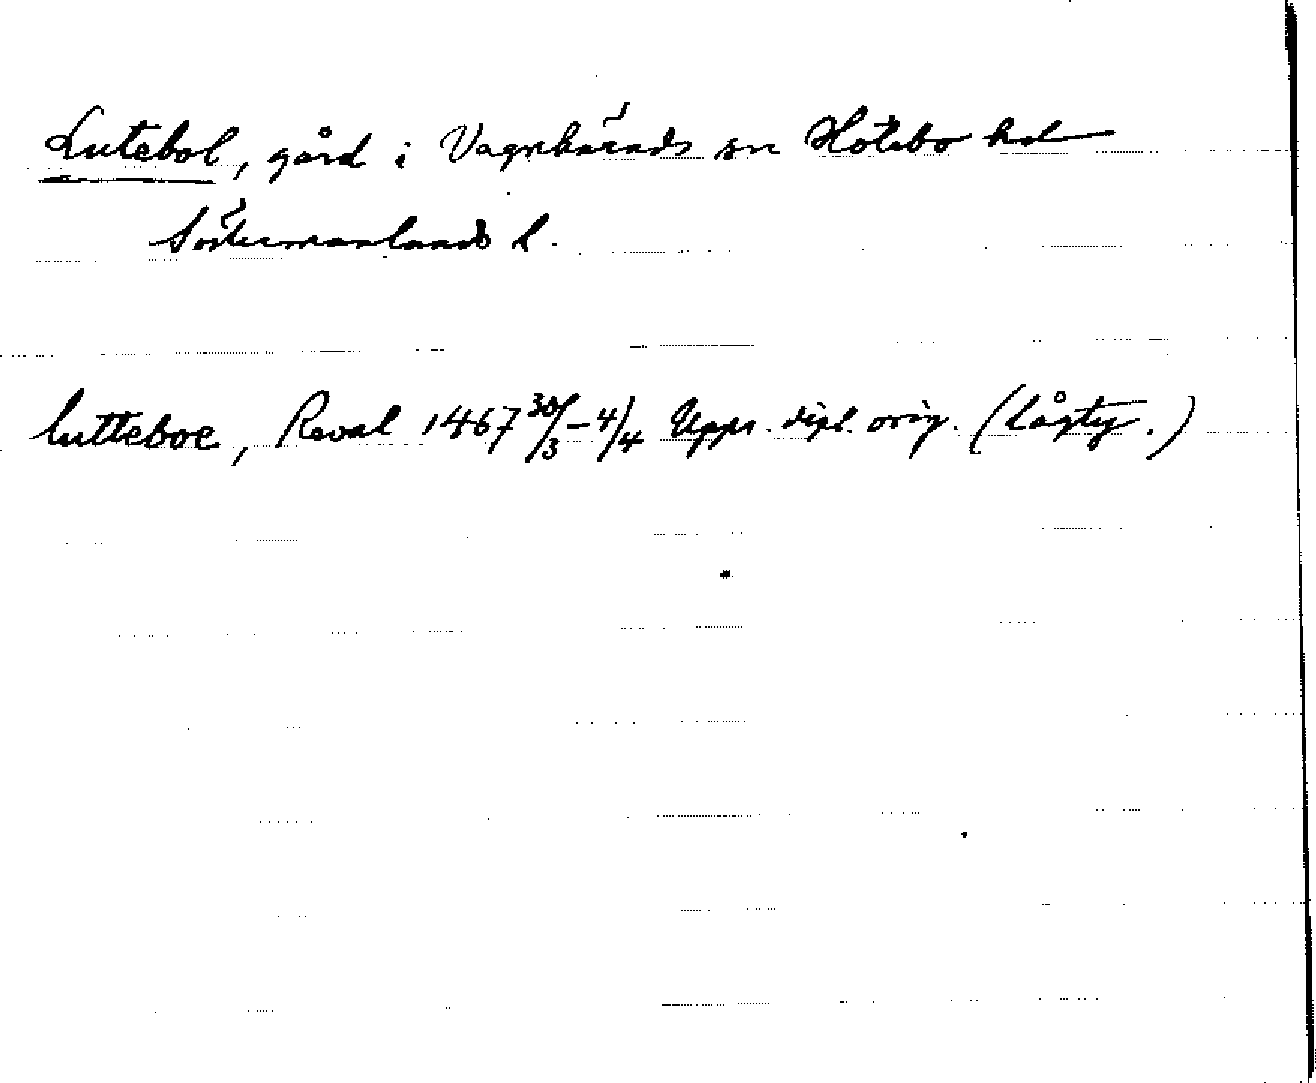 Lutebol, gård i Vagnhärads sn Hölebo hd
Södermanlands l.
lutteboe, Reval 1467 30/3–4/4 Upps. dipl. orig. (lågty.)